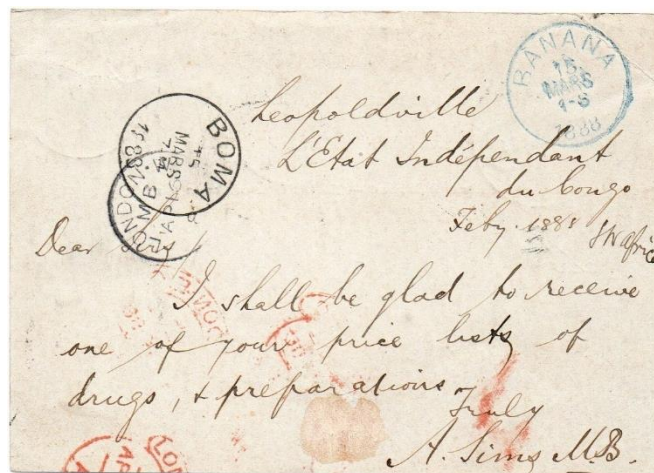 BANANA
15
MARS
1-S
1888
BOMA
15
MARS
7-M
1888
LONDON
M B
AP
Leopoldville
L'Etat Indépendant
du Congo
Feby. 1888 SW africa
Dear Sirs
I shall be glad to receive
one of your price lists of
drugs, & preparations
Truly
A. Sims M.B.
LON
AP